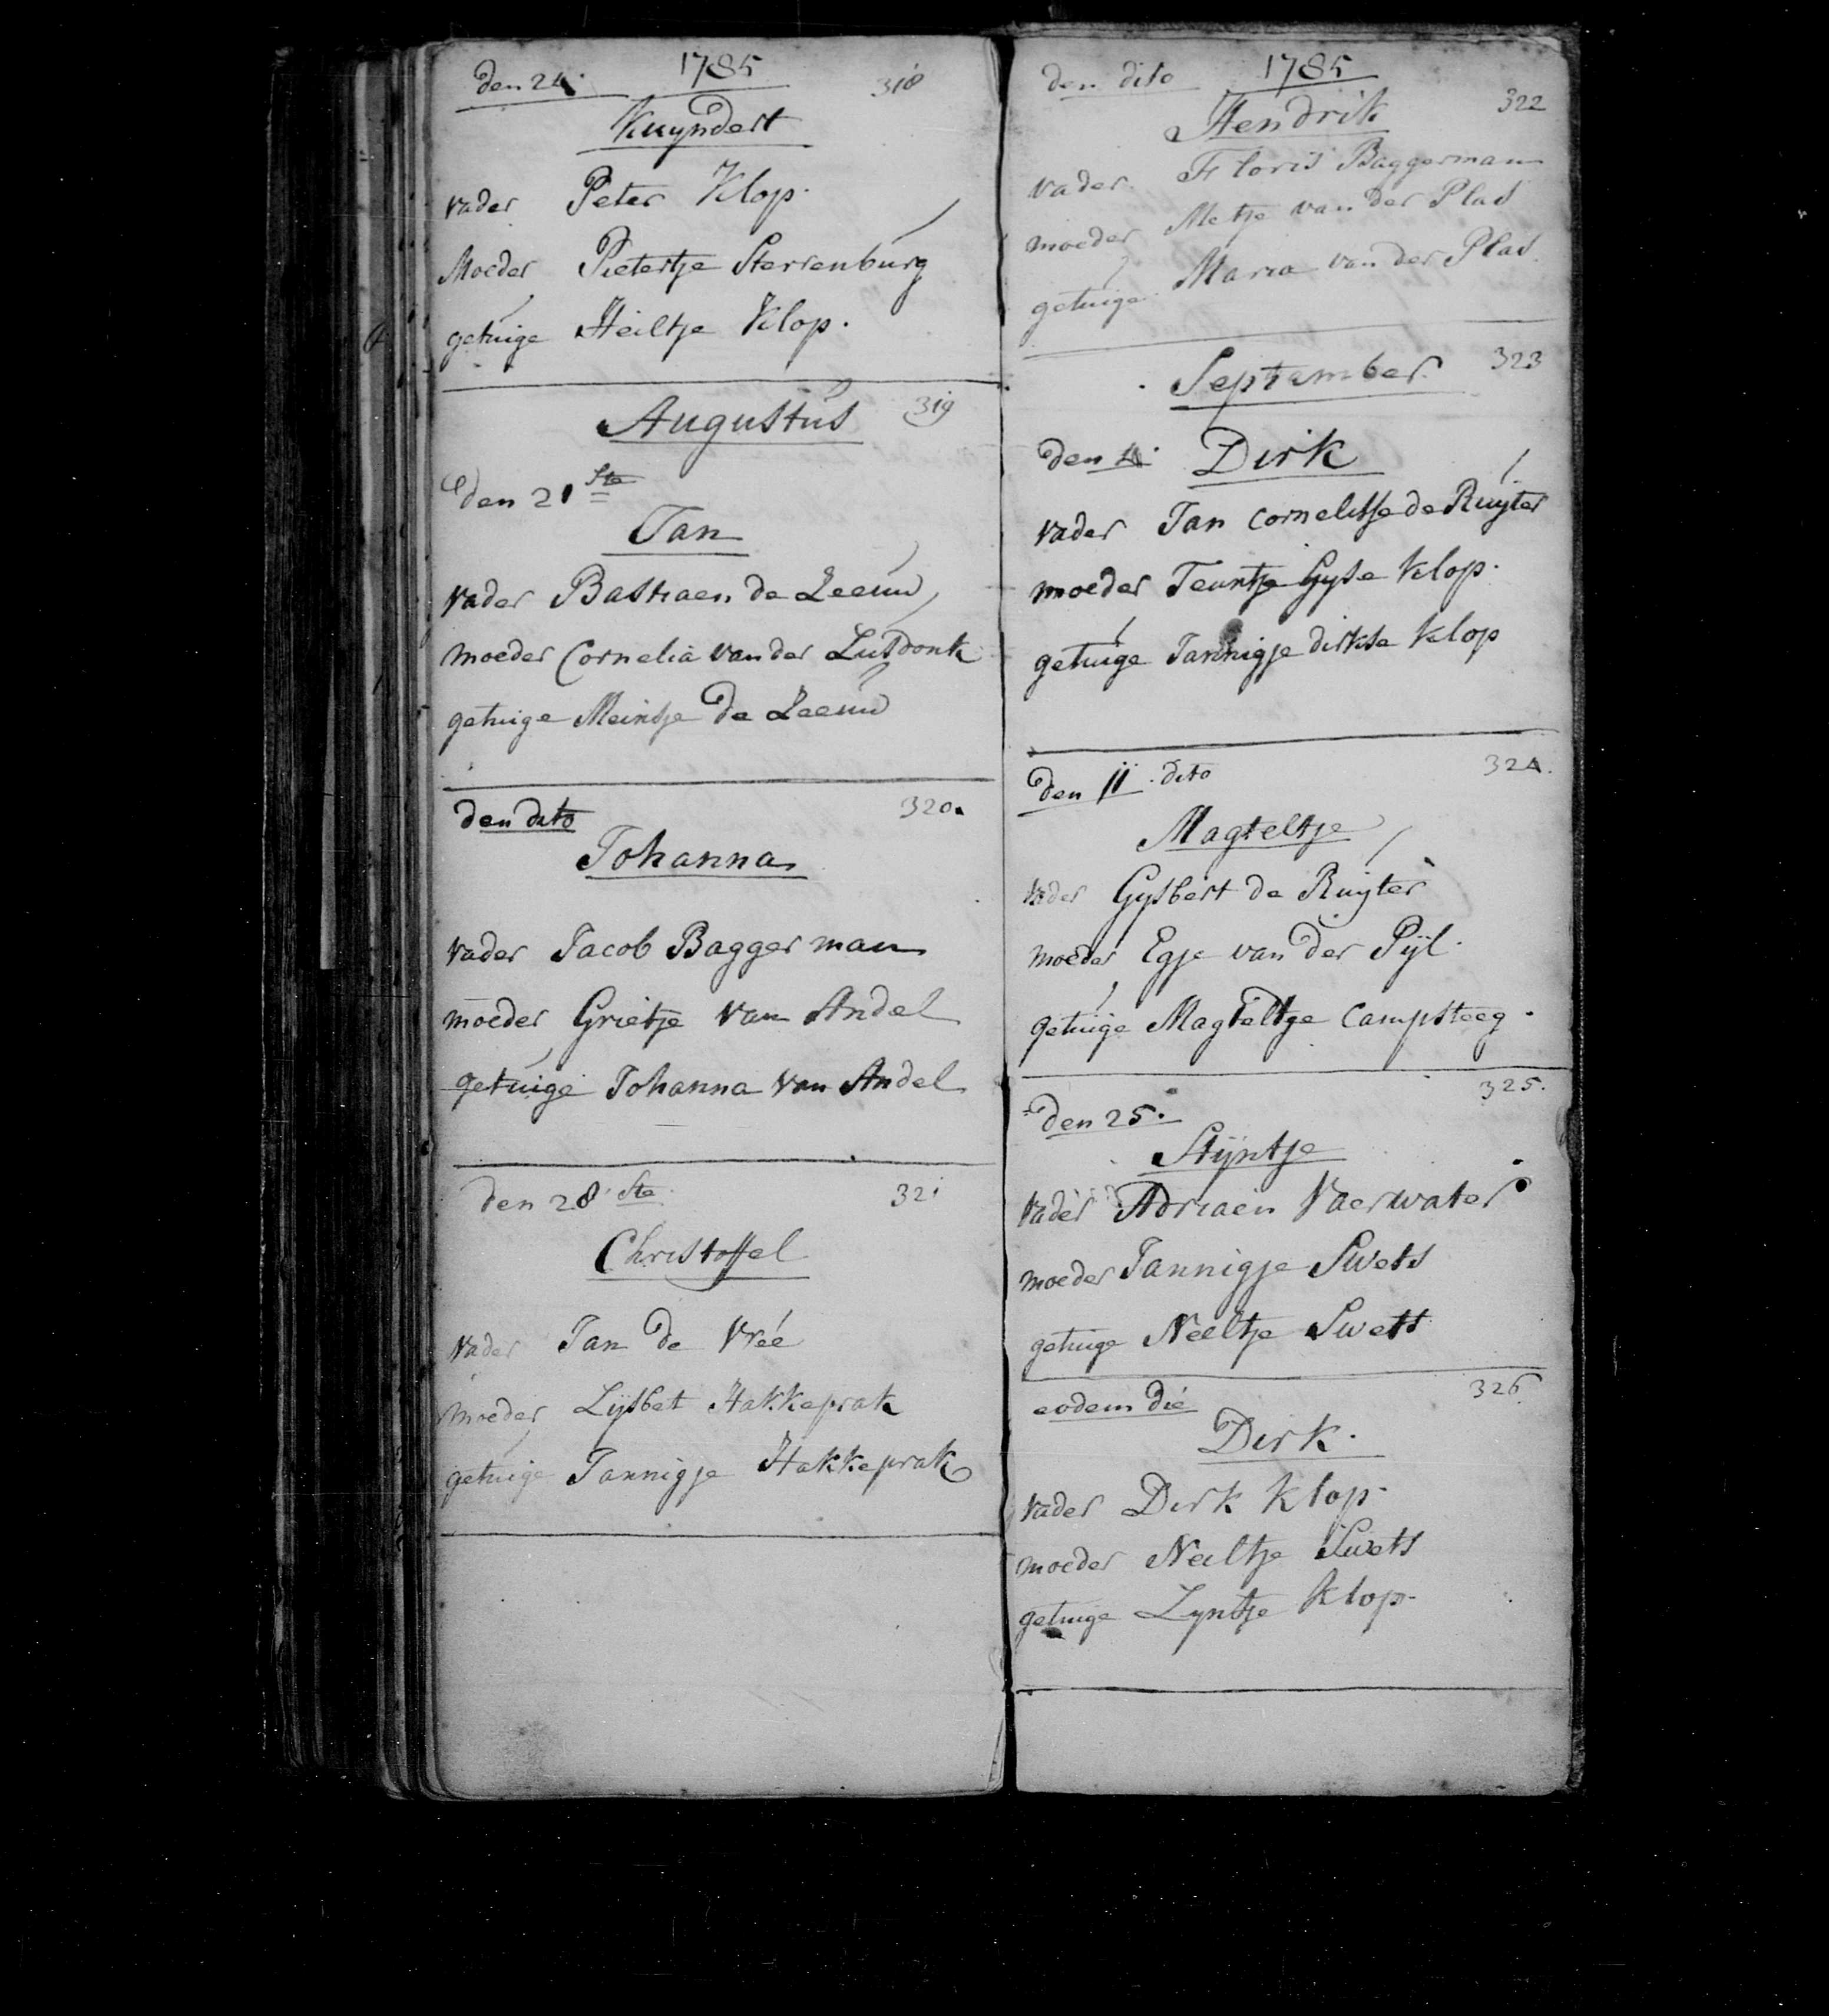 den 24. 1785 318
Kuyndert
vader Peter Klop.
Moeder Pietertje Sterrenburg
getuige Heiltje Klop.
Augustus 319
den 21 ste
Jan
vader Bastiaen de Leeuw
moeder Cornelia van der Lusdonk
getuige Meintje de Leeuw
den dito 320.
Johanna
vader Jacob Baggerman
moeder Grietje van Andel
getuige Johanna van Andel
den 28 ste 321
Christoffel
vader Jan de Vreé
moeder Lijsbet Hakkeprak
getuige Jannigje Hakkeprak
den dito 1785 322
Hendrik
vader Floris Baggerman
moeder Metje van der Plas
getuige Maria van der Plas.
September 323
den 4. Dirk
vader Jan Cornelisse de Ruyter
moeder Teuntje Gyse Klop.
getuige Jannigje dirkse Klop
den 11. dito 324.
Magteltje
vader Gysbert de Ruyter
moeder Egje van der Pijl.
getuige Magteltge Campsteeg.
den 25. 325.
Stijntje
vader Adriaen Vaerwater
moeder Jannigje Swets
getuige Neeltje Swets
eodem die 326
Dirk.
vader Dirk Klop.
moeder Neeltje Swets
getuige Lyntje Klop.